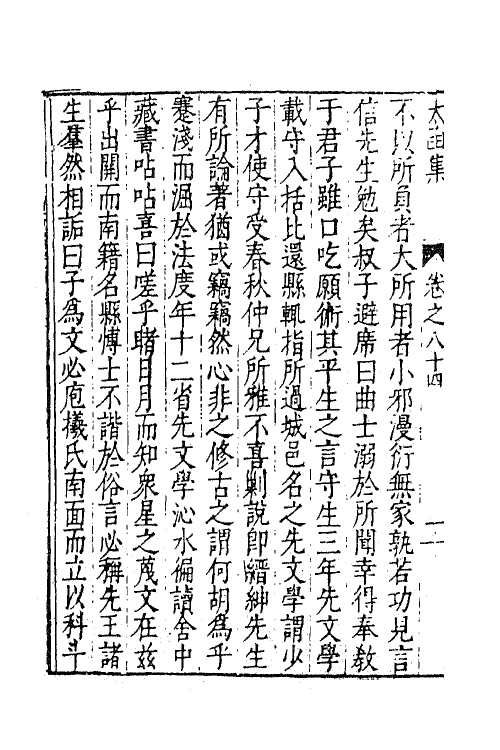 太函集 卷之八十四 二
不以所負者大所用者小邪漫衍無家孰若功見言
信先生勉矣叔子避席曰曲士溺於所聞幸得奉教
于君子雖口吃願術其平生之言守生三年先文學
載守入括比還縣輒指所過城邑名之先文學謂少
子才使守受春秋仲兄所雅不喜剿說卽縉紳先生
有所論著猶或竊竊然心非之修古之謂何胡為乎
蹇淺而溷於法度年十二省先文學沁水徧讀舍中
藏書呫呫喜曰嗟乎睹日月而知衆星之蔑文在茲
乎出關而南籍名縣博士不諧於俗言必稱先王諸
生羣然相詬曰子為文必庖犧氏南面而立以科斗